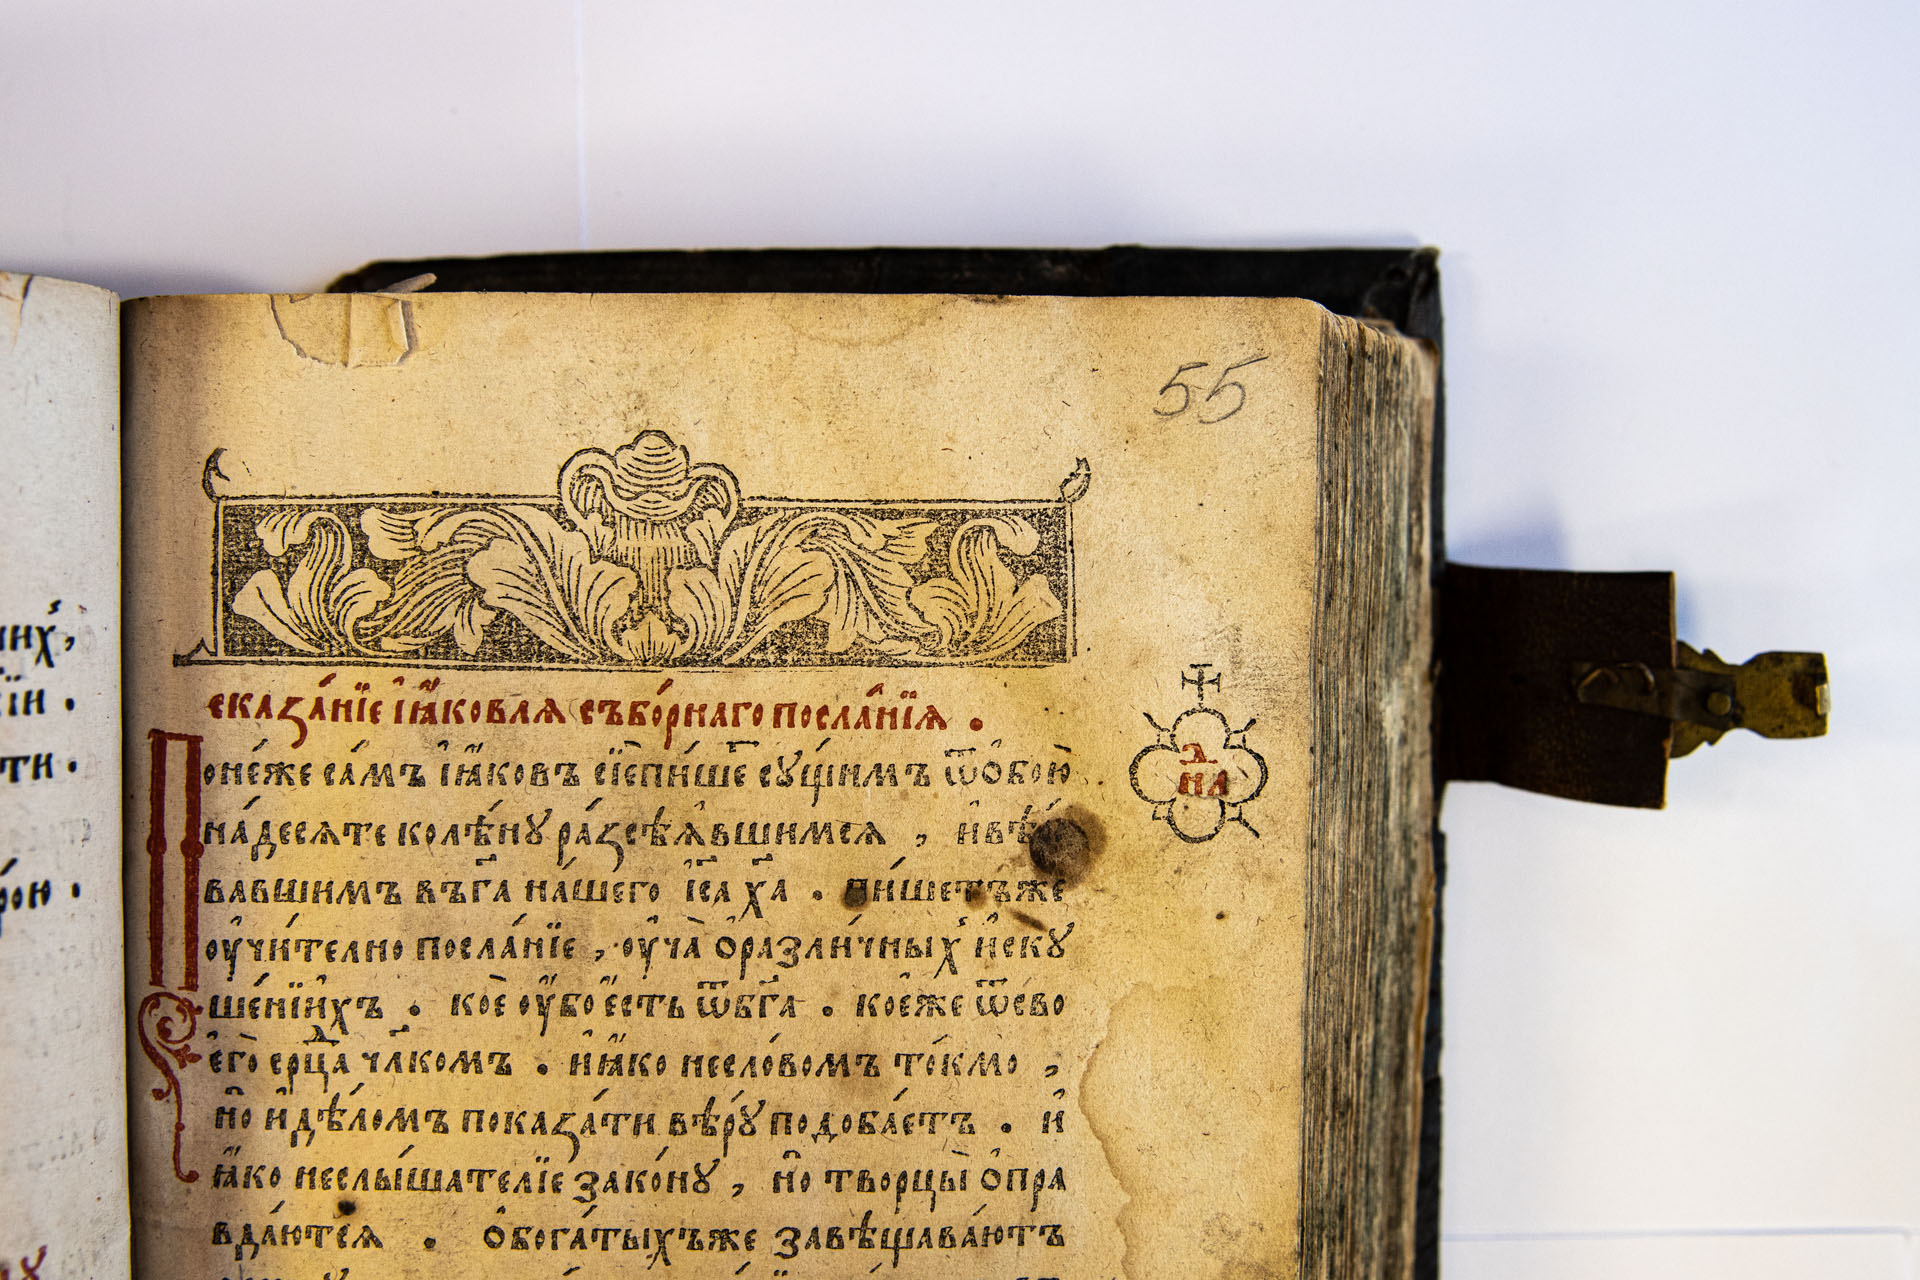 нныⷯ,
їи.
ти.
рою.
55
сказа́нїе і҆а҆́ковлѧ събо́рнаго посла́нїѧ.
Д
НА
Поне́же са́мъ і҆а҆́ковъ сїѐ пи́ше су́щимъ ѿ ѻ҆бою̀
на́десѧте колѣ́нꙋ ра́зсѣѧ́вшимсѧ, и҆ вѣ́
вавшимъ въ бг҃а на́шего і҆с҃а х҃а. пи́шетъ же
оу҆чи́телно посла́нїе, оу҆ча̀ ѻ҆ разли́чныⷯ и҆скꙋ
ше́нїи҆хъ. коѐ оу҆́бо є҆́сть ѿ бг҃а. кое́же ѿ сво
его̀ срⷣца чл҃комъ. и҆ ꙗ҆́ко не сло́вомъ то́кмо,
но̀ и҆ дѣ́ломъ показа́ти вѣ́рꙋ подоба́етъ. и҆
ꙗ҆́ко не слы́шателїе зако́нꙋ, но̀ творцы̀ ѻ҆пра
вда́ютсѧ. Ѻ҆ бога́тыхъ же завѣщава́ютъ